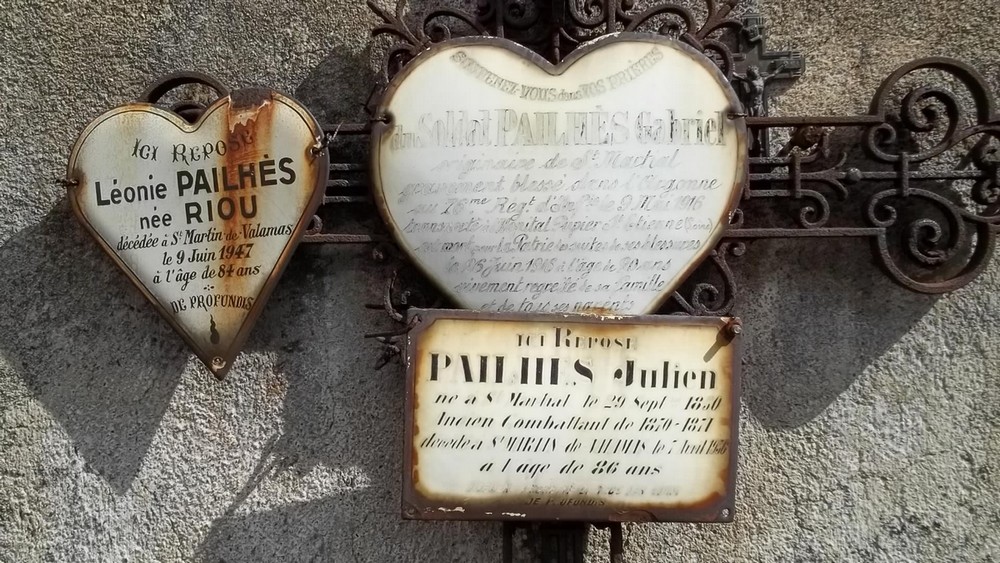 Ici Repose
Léonie PAILHÈS
née RIOU
décédée à St Martin-de-Valamas
le 9 Juin 1947
à l'âge de 84 ans
DE PROFUNDIS
SOUVENEZ-VOUS dans VOS PRIÈRES
du Soldat PAILHÈS Gabriel
originaire de St Machal
gravement blessé dans l'Argonne
au 76me Regt d'Inf le 9 Mai 1916
à l'Hôpital
mort pour la Patrie des suites de ses blessures
le 16 Juin à l'âge de 20 ans
vivement regretté de sa famille
et de tous ses parents
Ici Repose
PAILHES Julien
né à St Machal le 29 Sept 1850
Ancien Combattant de 1870-1871
décédé à St MARTIN de VALAMAS le 7 Avril
à l'âge de 86 ans